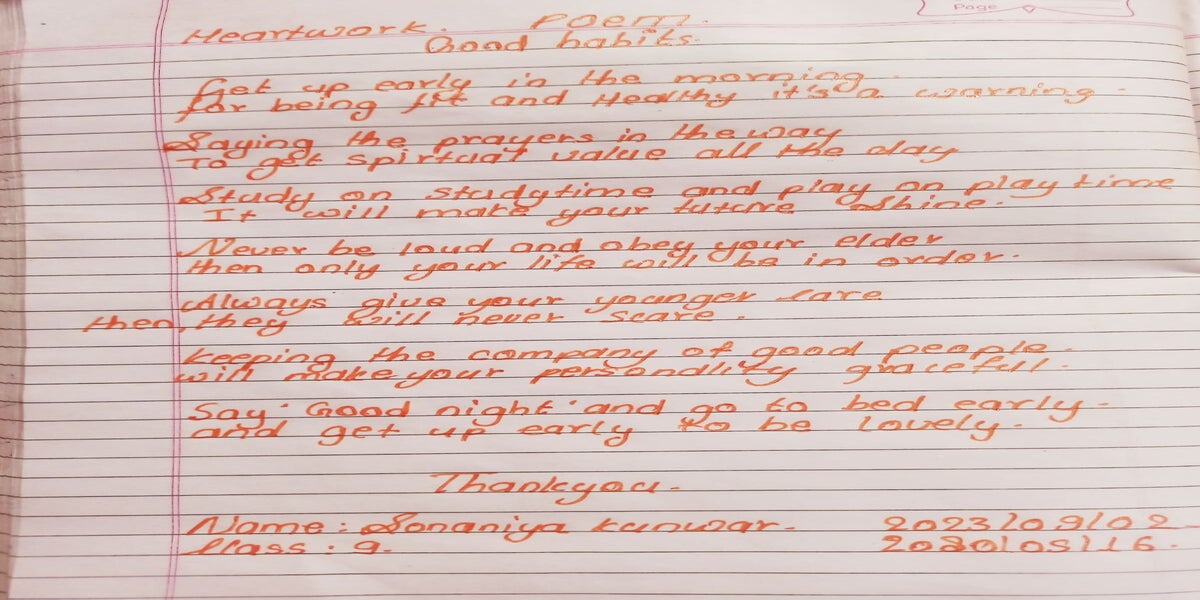 Page
Heartwork. Poem.
Good habits.
Get up early in the morning.
for being fit and Healthy it's a warning.
Saying the prayers in the way
To get spirtual value all the day
Study on studytime and play on play time
It will make your future shine.
Never be loud and obey your elder
then only your life will be in order.
Always give your younger care
then, they will never scare.
keeping the company of good people.
will make your personality graceful.
Say 'Good night' and go to bed early.
and get up early to be lovely.
Thankyou.
Name : Sonaniya kunwar. 2023/09/02
Class : 9. 2080/05/16.